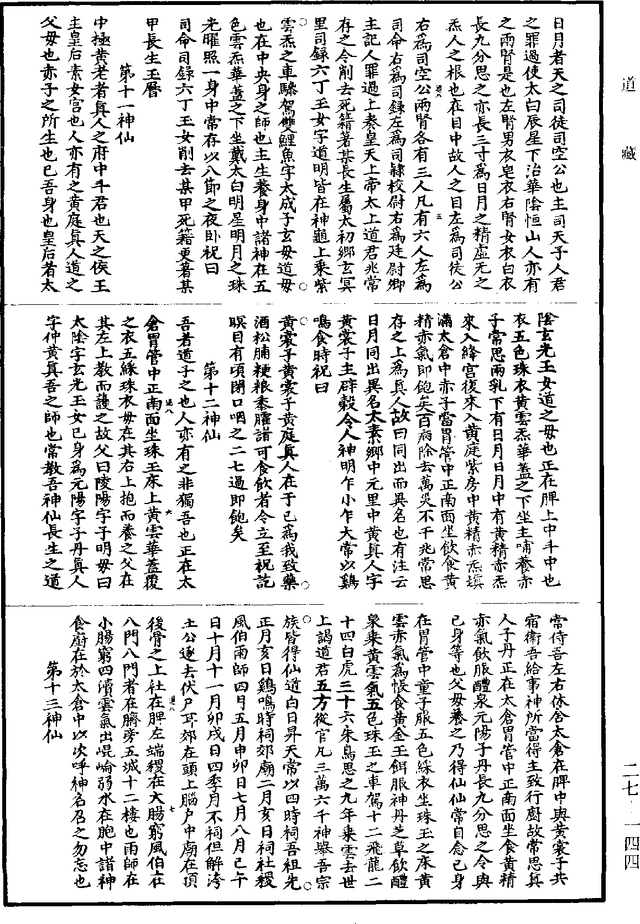 道藏
日月者天之司徒司空公也主司天子人君
之罪過使太白辰星下治華陰恒山人亦有
之兩腎是也左腎男衣皂衣右腎女衣白衣
長九分思之亦長三寸為日月之精虛无之
炁人之根也在目中故人之目左為司徒公
右為司空公兩腎各有三人凡有六人左為
司命右為司錄左為司隸校尉右為廷尉卿
主記人罪過上奏皇天上帝太上道君兆常
存之令削去死籍著某長生屬太初鄉玄冥
里司錄六丁玉女字道明皆在神龜上乘紫
雲炁之車驂駕雙鯉魚字太成子玄母道母
也在中央身之師也主生養身中諸神在五
色雲炁華蓋之下坐戴太白明星明月之珠
光曜照一身中常存以八節之夜卧祝曰
司命司錄六丁玉女削去某甲死籍更著某
甲長生玉曆
第十一神仙
中極黃老者真人之府中斗君也天之侯王
主皇后素女宮也人亦有之黃庭真人道之
父母也赤子之所生也己吾身也皇后者太
陰玄光玉女道之母也正在脾上中斗中也
衣五色珠衣黃雲炁華蓋之下坐主哺養赤
子常思兩乳下有日月日月中有黃精赤炁
來入絳宮復來入黃庭紫房中黃精赤炁填
滿太倉中赤子當胃管中正南面坐飲食黃
精赤氣即飽矣百病除去萬災不干兆常思
存之上為真人故曰同出而異名也有注云
日月同出異名太素鄉中元里中黃真人字
黃裳子主辟穀令人神明乍小乍大常以雞
鳴食時祝曰
黃裳子黃裳子黃庭真人在于己為我致藥
酒松脯粳粮黍臛諸可食飲者令立至祝訖
瞑目有頃閉口咽之二七過即飽矣
第十二神仙
吾者道子之也人亦有之非獨吾也正在太
倉胃管中正南面坐珠玉床上黃雲華蓋覆
之衣五綵珠衣母在其右上抱而養之父在
其左上教而護之故父曰陵陽字子明母曰
太陰字玄光玉女己身為元陽字子丹真人
字仲黃真吾之師也常教吾神仙長生之道
常侍吾左右休舍太倉在脾中與黃裳子共
宿衛吾給事神所當得主致行廚故常思真
人子丹正在太倉胃管中正南面坐食黃精
赤氣飲服醴泉元陽子丹長九分思之令與
己身等也父母養之乃得仙仙常自念己身
在胃管中童子服五色綵衣坐珠玉之床黃
雲赤氣為帳食黃金玉餌服神丹芝草飲醴
泉乘黃雲氣五色珠玉之車駕十二飛龍二
十四白虎三十六朱鳥思之九年乘雲去世
上謁道君五方從官凡三萬六千神舉吾宗
族皆得仙道白日昇天常以四時祠吾祖先
正月亥日雞鳴時祠郊廟二月亥日祠社稷
風伯雨師四月五月申卯日七月八月巳午
日十月十一月卯戌日四季月不祠但解洿
土公逐去伏尸耳郊在頭上腦戶中廟在項
後骨之上社在脾左端稷在大腸窮風伯在
八門八門者在臍旁五城十二樓也雨師在
小腸窮四瀆雲氣出崐崘弱水在胞中諸神
食廚在於太倉中以次呼神名召之勿忘也
第十三神仙
二七·一四四